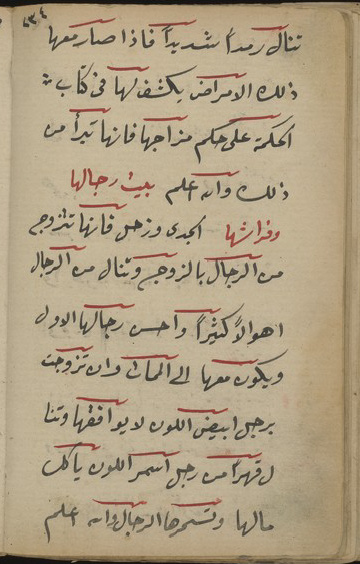 ٤٣٤
تنال رمداً شديداً فاذا صار معها
ذلك الامراض يكشف لها فى كتاب
الحكمة على حكم مزاجها فانها تبرأ من
ذلك والله اعلم بيت رجالها
وفراشها الجدى وزحل فانها تتزوج
من الرجال بالزوج وتنال من الرجال
اهوالاً كثيراً واحسن رجالها الاول
ويكون معها الى الممات وان تزوجت
برجل ابيض اللون لا يوافقها وتنا
ل قهراً من رجل اسمر اللون ياكل
مالها والله اعلم